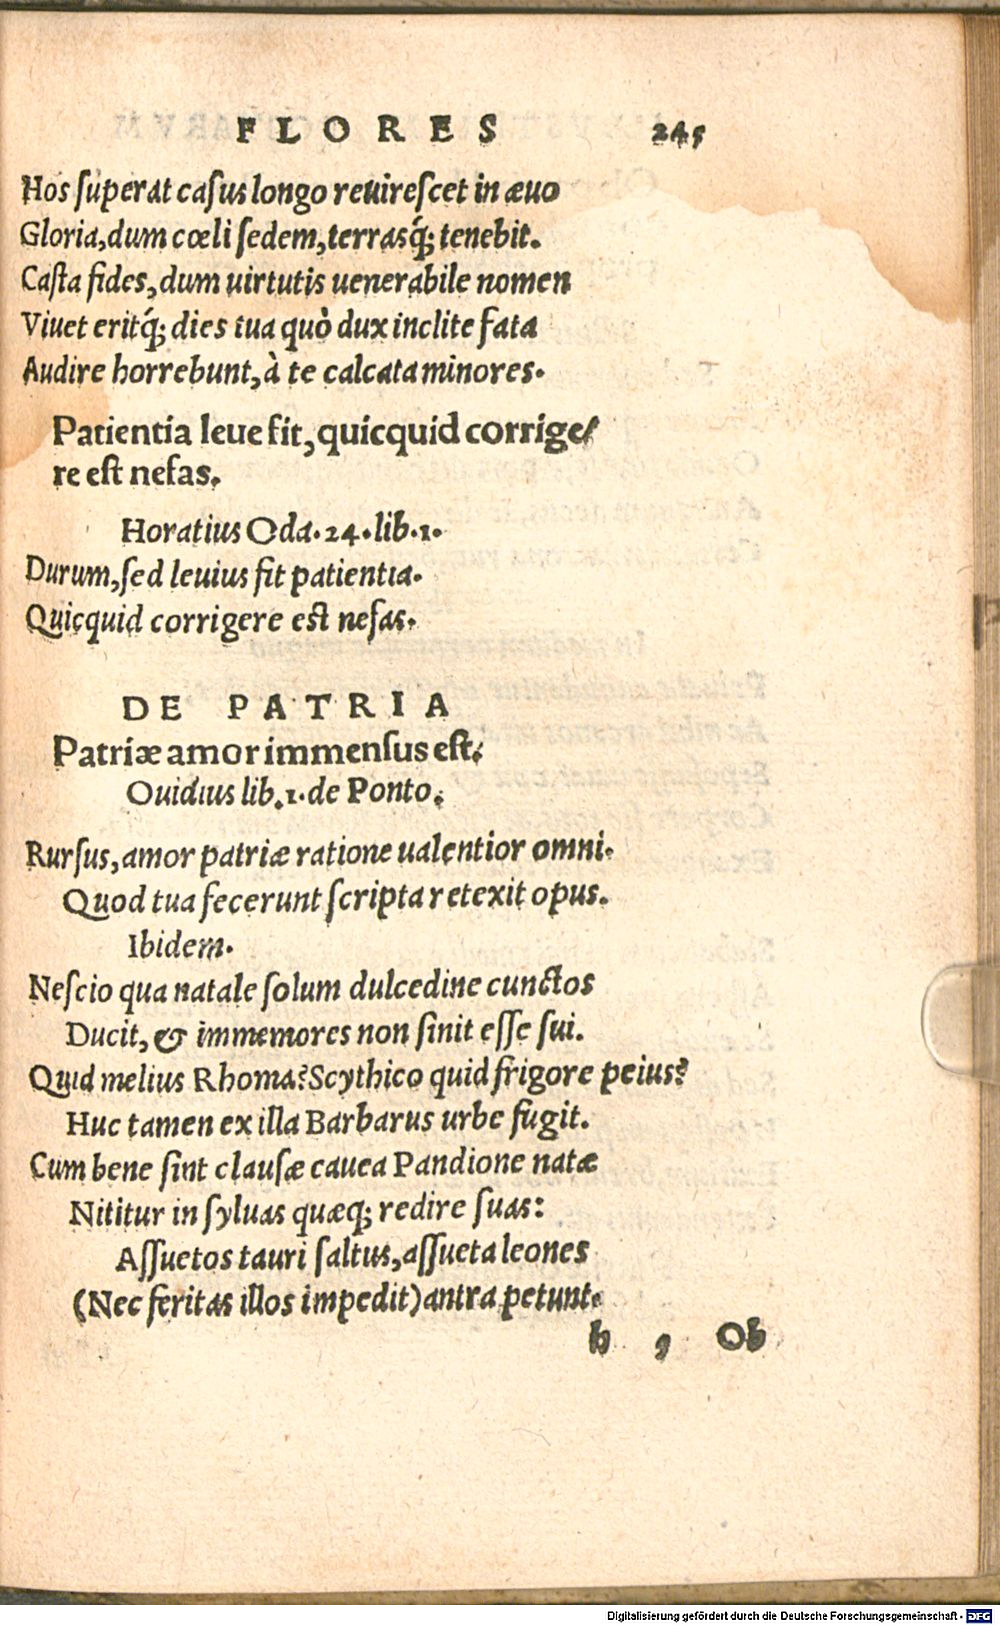 FLORES 245
Hos superat casus longo reuirescet in æuo
Gloria, dum cœli sedem, terrasq́; tenebit.
Casta fides, dum uirtutis uenerabile nomen
Viuet eritq́; dies tua quò dux inclite fata
Audire horrebunt, à te calcata minores.
Patientia leue fit, quicquid corrige/
re est nefas.
Horatius Oda. 24. lib. 1.
Durum, sed leuius fit patientia.
Quicquid corrigere est nefas.
DE PATRIA
Patriæ amor immensus est.
Ouidius lib. 1. de Ponto.
Rursus, amor patriæ ratione ualentior omni.
Quod tua fecerunt scripta retexit opus.
Ibidem.
Nescio qua natale solum dulcedine cunctos
Ducit, & immemores non sinit esse sui.
Quid melius Rhoma? Scythico quid frigore peius?
Huc tamen ex illa Barbarus urbe fugit.
Cum bene sint clausæ cauea Pandione natæ
Nititur in syluas quæq; redire suas:
Assuetos tauri saltus, assueta leones
(Nec feritas illos impedit) antra petunt.
h 5 Ob
Digitalisierung gefördert durch die Deutsche Forschungsgemeinschaft - DFG